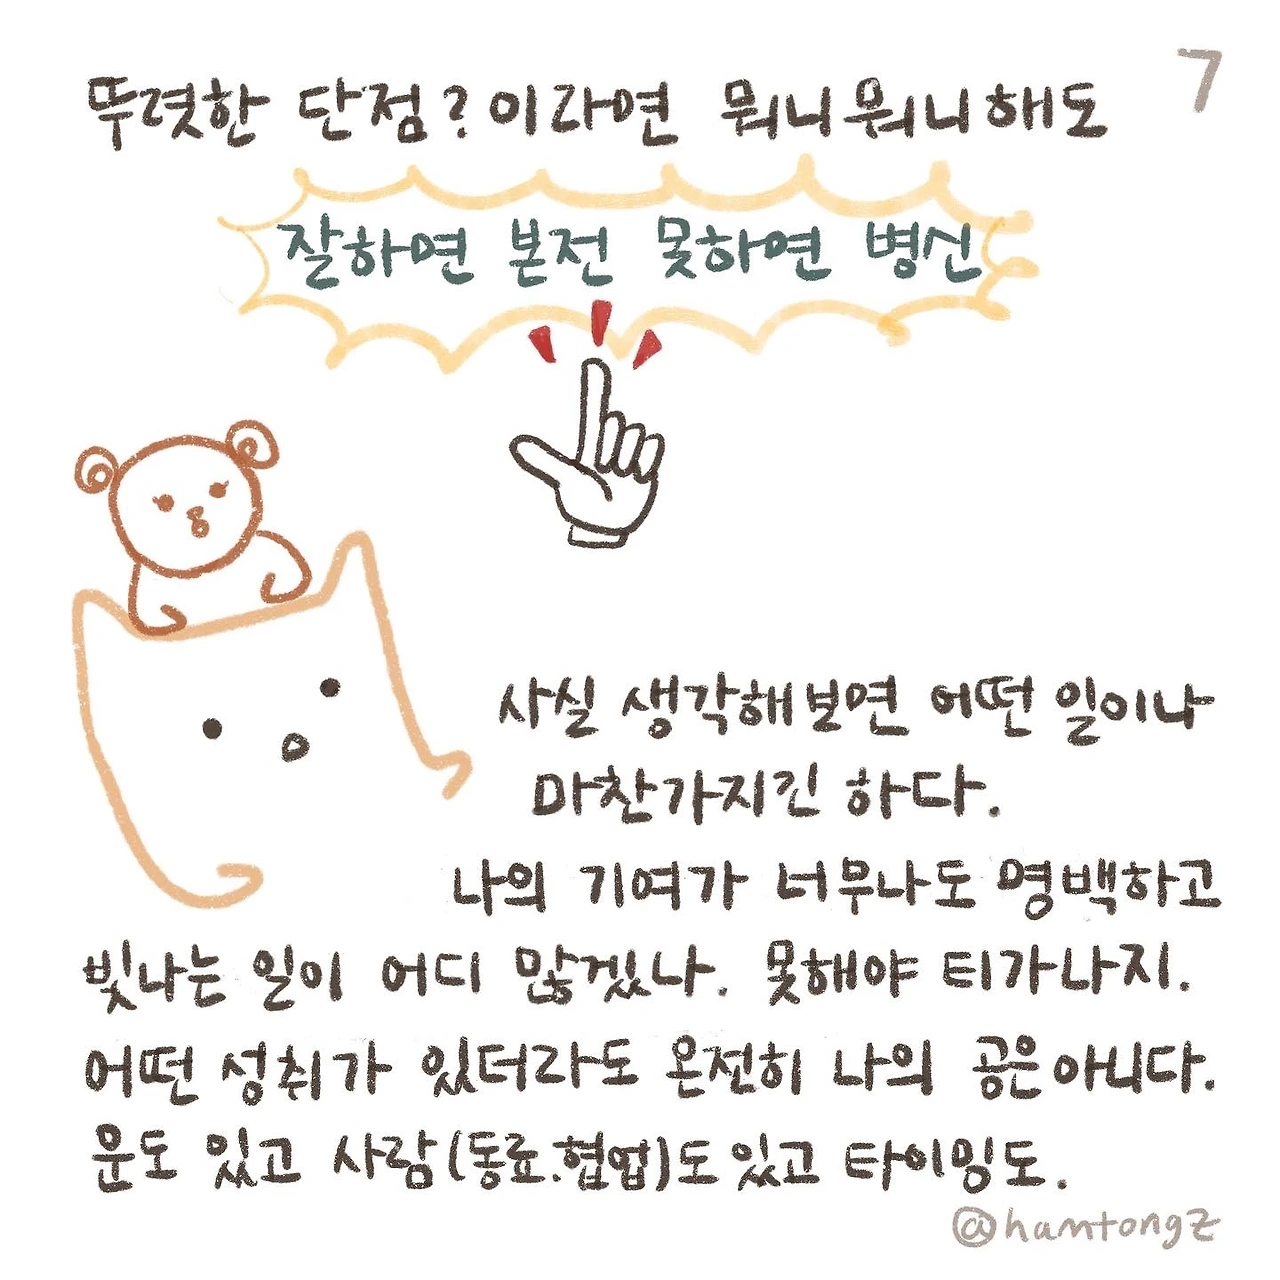 7
뚜렷한 단점? 이라면 뭐니뭐니해도
잘하면 본전 못하면 병신
사실 생각해보면 어떤 일이나
마찬가지긴 하다.
나의 기여가 너무나도 명백하고
빛나는 일이 어디 많겠나. 못해야 티가나지.
어떤 성취가 있더라도 온전히 나의 공은아니다.
운도 있고 사람(동료.협업)도있고 타이밍도.
@hamtongz